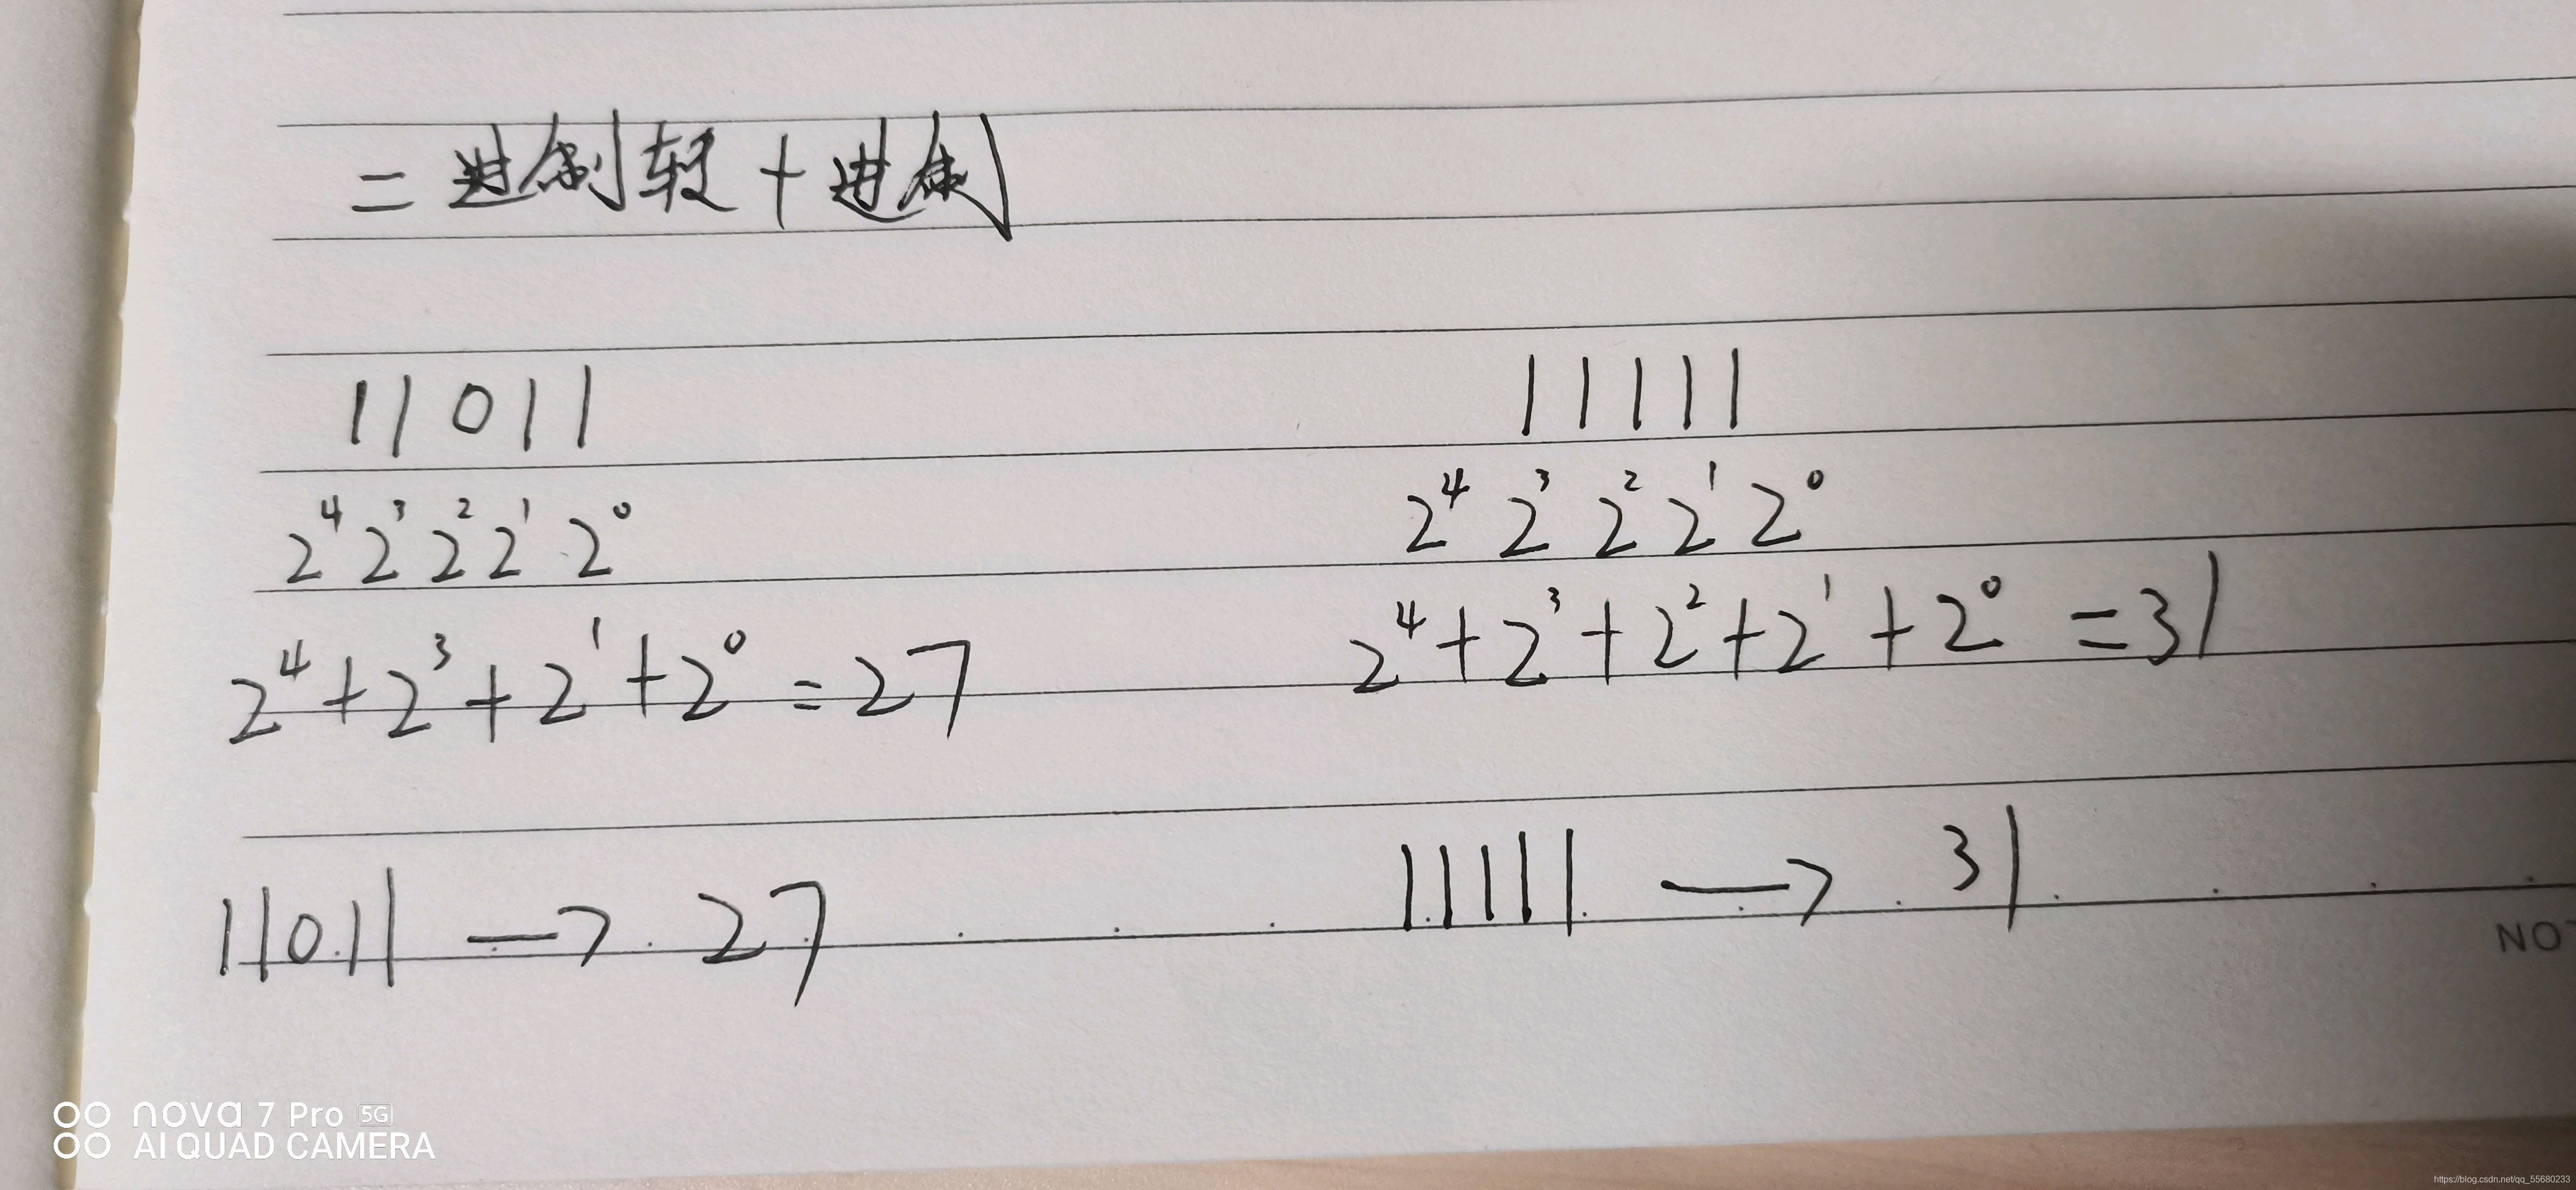 二进制转十进制
11011
2⁴ 2³ 2² 2¹ 2⁰
2⁴+2³+2¹+2⁰=27
11011 → 27
11111
2⁴ 2³ 2² 2¹ 2⁰
2⁴+2³+2²+2¹+2⁰=31
11111 → 31
NO
nova 7 Pro 5G
AI QUAD CAMERA
https://blog.csdn.net/qq_55680233